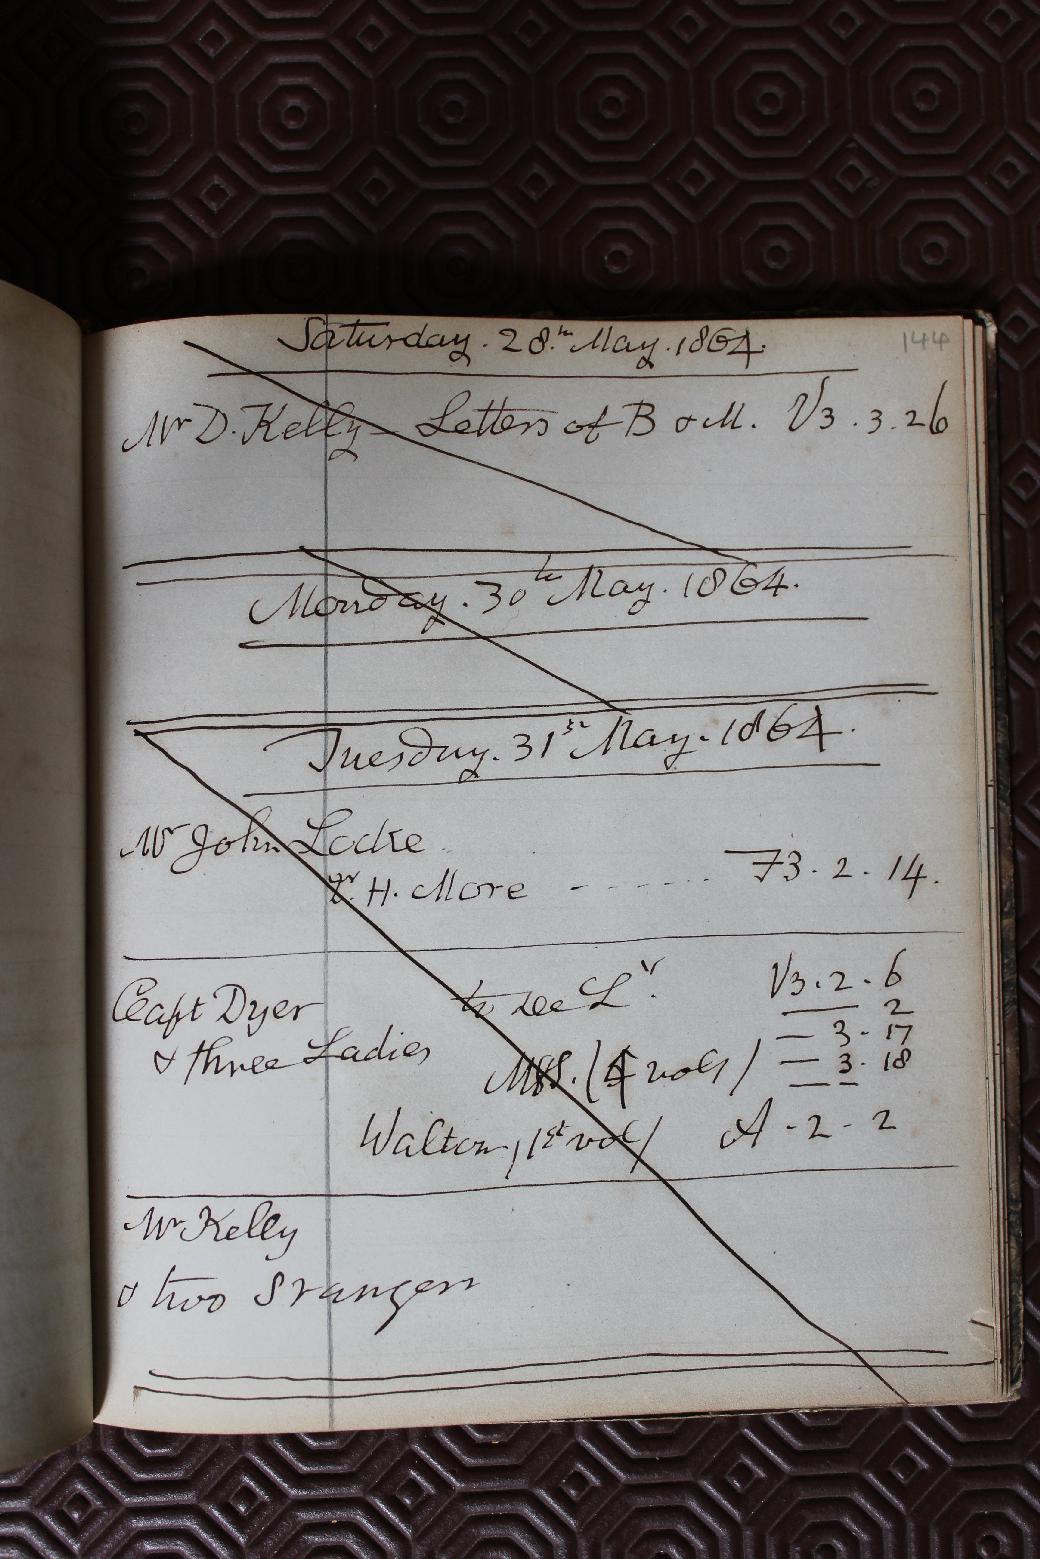 144
Saturday. 28.th May. 1864.
Mr D. Kelly – Letters of B & M. V3. 3. 26
Monday. 30th May. 1864.
Tuesday. 31st May. 1864.
Mr John Locke
Dr. H. More - - - - - - - 73. 2. 14.
Capt Dyer to see Ly. V3. 2. 6
— 2
& three Ladies — 3. 17
MSS. (4 vols) — 3. 18
Walton, (1st vol) A - 2 - 2
Mr Kelly
& two Strangers